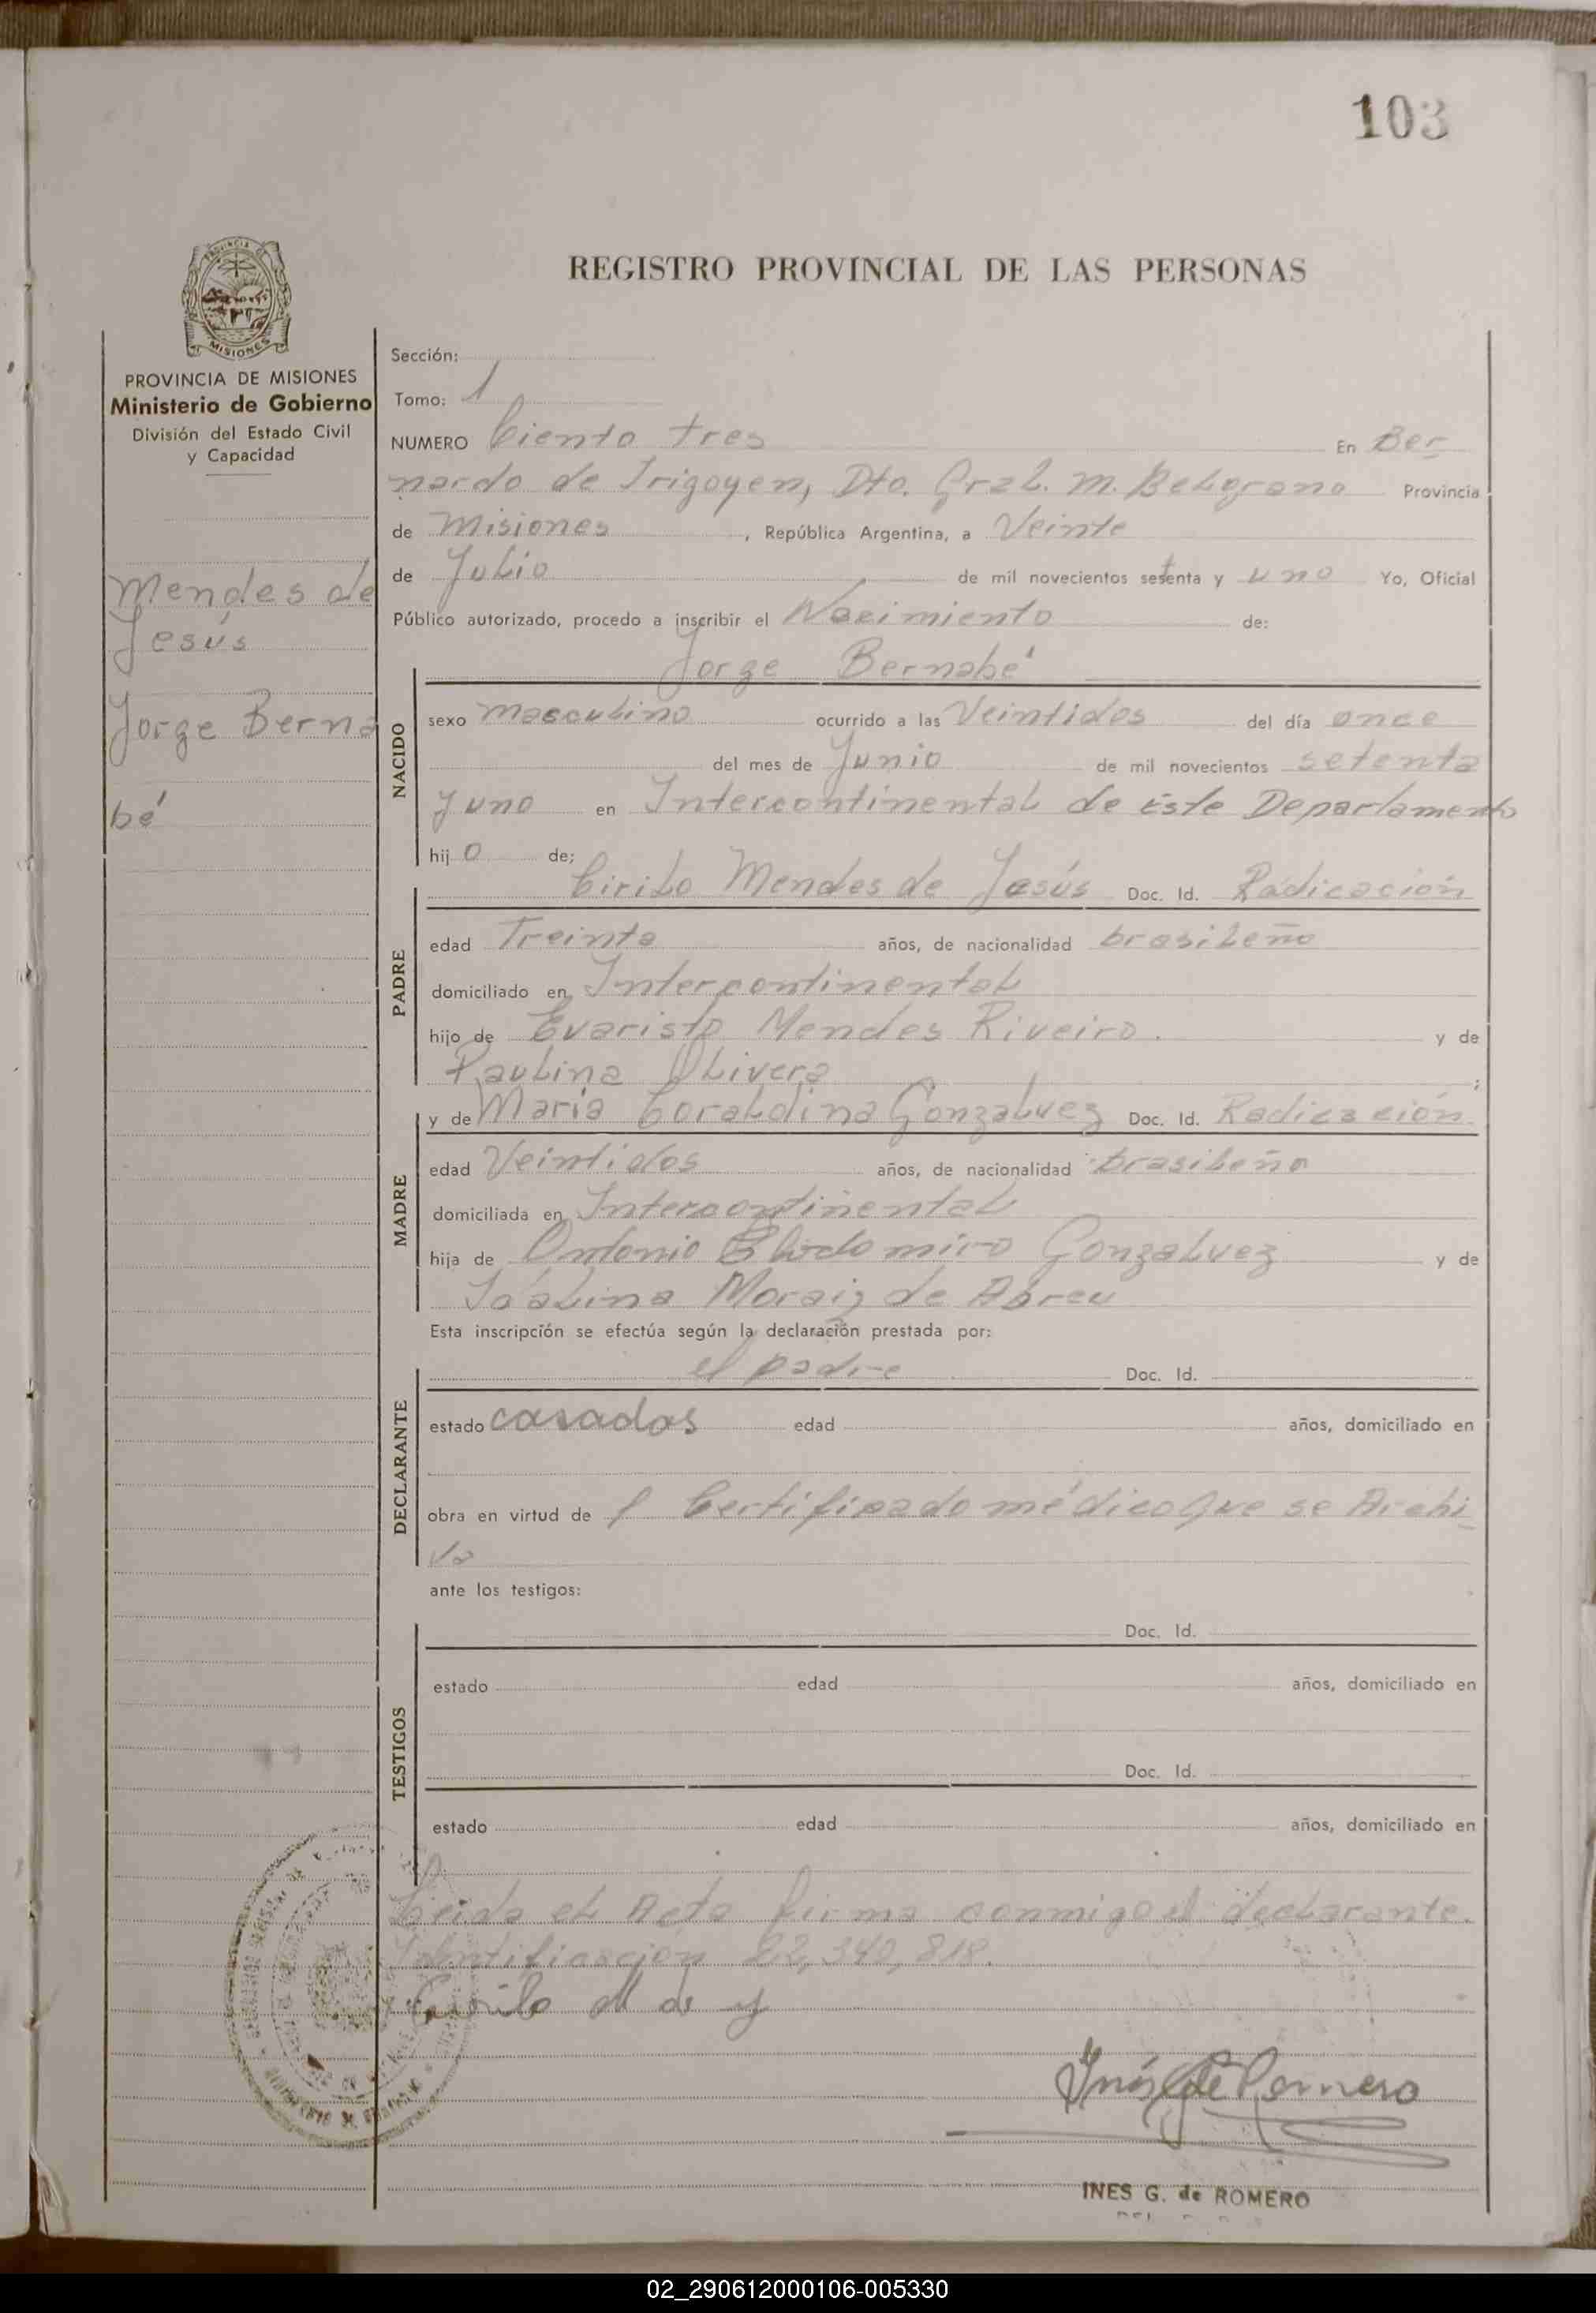 103
REGISTRO PROVINCIAL DE LAS PERSONAS
PROVINCIA DE MISIONES
Ministerio de Gobierno
División del Estado Civil
y Capacidad
Mendes de
Jesús
Jorge Berna
bé
Sección:
Tomo: 1
NUMERO Ciento tres En Ber
nardo de Irigoyen, Dto. Gral. M. Belgrano Provincia
de Misiones, República Argentina, a Veinte
de Julio de mil novecientos setenta y uno Yo, Oficial
Público autorizado, procedo a inscribir el Nacimiento de:
Jorge Bernabé
NACIDO
sexo masculino ocurrido a las Veintidos del día once
del mes de Junio de mil novecientos setenta
y uno en Intercontinental de Este Departamento
hijo de;
Cirilo Mendes de Jesús Doc. Id. Radicación
PADRE
edad Treinta años, de nacionalidad brasileño
domiciliado en Intercontinental
hijo de Evaristo Mendes Riveiro y de
Paulina Olivera ;
y de María Coraldina Gonzalvez Doc. Id. Radicación
MADRE
edad Veintidos años, de nacionalidad brasileña
domiciliada en Intercontinental
hija de Antonio Clodomiro Gonzalvez y de
Moraiz de Abreu
Esta inscripción se efectúa según la declaración prestada por:
el padre Doc. Id.
DECLARANTE
estado casados edad años, domiciliado en
obra en virtud de 1 Certificado médico que se Archi
va
ante los testigos:
Doc. Id.
TESTIGOS
estado edad años, domiciliado en
Doc. Id.
estado edad años, domiciliado en
Leida el Acta firma conmigo el declarante.
Identificación 82,340,818.
Cirilo M de J
Inés G de Romero
INES G. de ROMERO
02_290612000106-005330